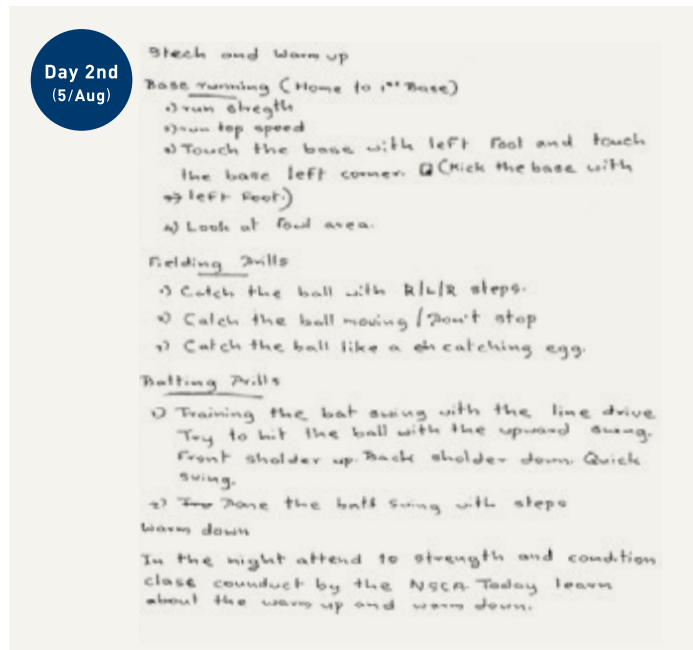 Day 2nd
(5/Aug)
Stech and Warm up
Base running (Home to 1st Base)
1) run stregth
2) run top speed
3) Touch the base with left foot and touch
the base left corner. (Kick the base with
left foot.)
4) Look at foul area.
Fielding Drills
1) Catch the ball with R/L/R steps.
2) Catch the ball moving / Don't stop
3) Catch the ball like a catching egg.
Batting Drills
1) Training the bat swing with the line drive
Try to hit the ball with the upward swing.
Front sholder up. Back sholder down. Quick
swing.
2) Done the batt swing with steps
Warm down
In the night attend to strength and condition
clase counduct by the NSCA. Today learn
about the warm up and warm down.